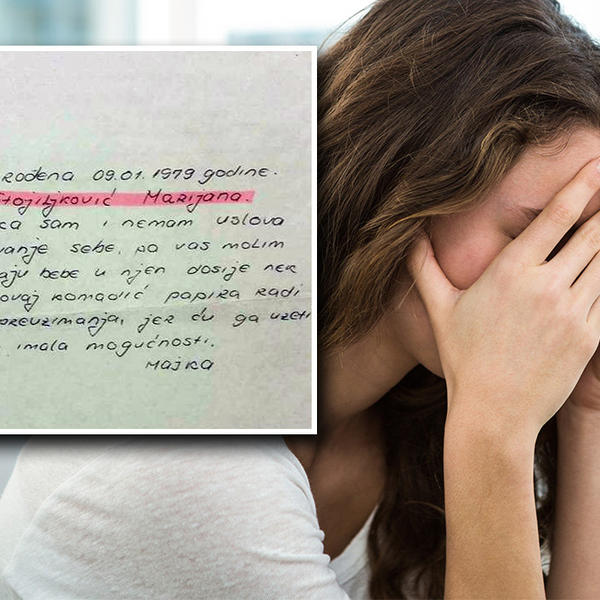 rođena 09.01.1979 godine.
Stojiljković Marijana.
ca sam i nemam uslova
vanje sebe, pa vas molim
aju bebe u njen dosije nek
ovaj komadić papira radi
preuzimanja, jer ću ga uzeti
imala mogućnosti.
Majka